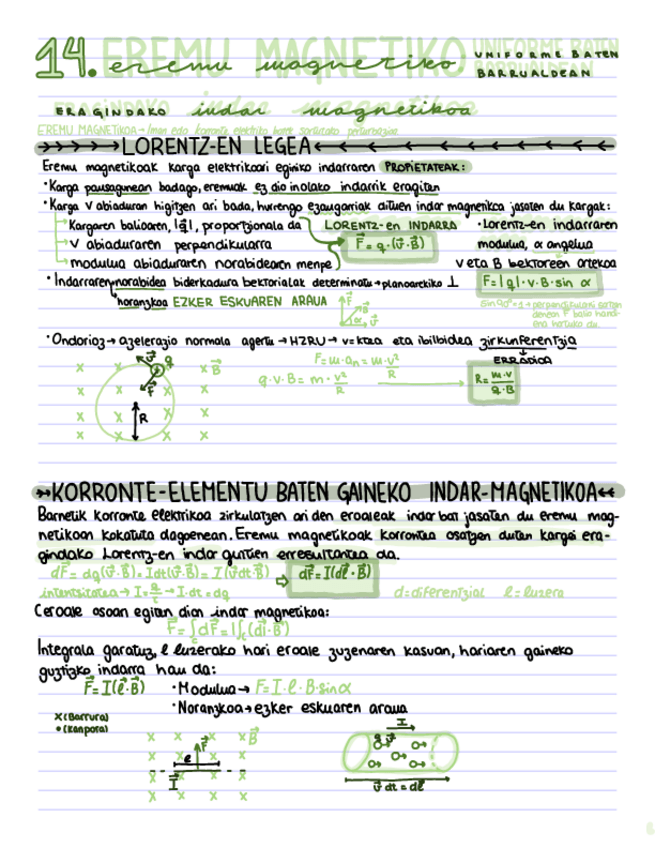 14. EREMU MAGNETIKO UNIFORME BATEN
eremu magnetiko BARRUALDEAN
ERAGINDAKO indar magnetikoa
EREMU MAGNETIKOA → Iman edo korronte elektriko batek sortutako perturbazioa
LORENTZ-EN LEGEA
Eremu magnetikoak karga elektrikoari eginiko indarraren PROPIETATEAK:
· Karga pausagunean badago, eremuak ez dio inolako indarrik eragiten
· Karga v abiaduran higitzen ari bada, hurrengo ezaugarriak dituen indar magnetikoa jasaten du kargak:
Kargaren balioaren, |q|, proportzionala da LORENTZ-en INDARRA · Lorentz-en indarraren
v abiaduraren perpendikularra F⃗ = q·(v⃗·B⃗) modulua, α angelua
modulua abiaduraren norabidearen menpe v eta B bektoreen artekoa
· Indarraren norabidea biderkadura bektorialak determinatu → planoarekiko ⊥ F=|q|·v·B·sin α
noranzkoa EZKER ESKUAREN ARAUA F⃗ B⃗ α v⃗ sin 90°=1 → perpendikulari
denean F balio handi-
ena hartuko du.
· Ondorioz → azelerazio normala agertu → HZRU → v=ktea eta ibilbidea zirkunferentzia
ERRADIOA
x x x x B⃗ v⃗ q F⃗ F=m·aₙ=m·v²/R
q·v·B = m·v²/R → R = m·v/q·B
x x x x
x x R x x
x x x x
KORRONTE-ELEMENTU BATEN GAINEKO INDAR-MAGNETIKOA
Barnetik korronte elektrikoa zirkulatzen ari den eroaleak indar bat jasaten du eremu mag-
netikoan kokatuta dagoenean. Eremu magnetikoak korrontea osatzen duten kargei era-
gindako Lorentz-en indar guztien erresultantea da.
dF⃗ = dq(v⃗·B⃗) = Idt(v⃗·B⃗) = I(v⃗dt·B⃗) ⇨ dF⃗ = I(dl⃗·B⃗)
intentsitatea → I=q/t → I·dt=dq d=diferentzial l=luzera
Eroale osoan egiten dion indar magnetikoa:
F⃗ = ∫c dF⃗ = I∫c(dl⃗·B⃗)
Integrala garatuz, l luzerako hari eroale zuzenaren kasuan, hariaren gaineko
guztizko indarra hau da:
F⃗ = I(l⃗·B⃗) · Modulua → F=I·l·B·sinα
· Noranzkoa → ezker eskuaren araua
x (Barrura)
• (Kanpora)
x x x x B⃗ F⃗ I
x l x x x q v⃗
x I⃗ x x x
x x x x v⃗ dt = dl⃗